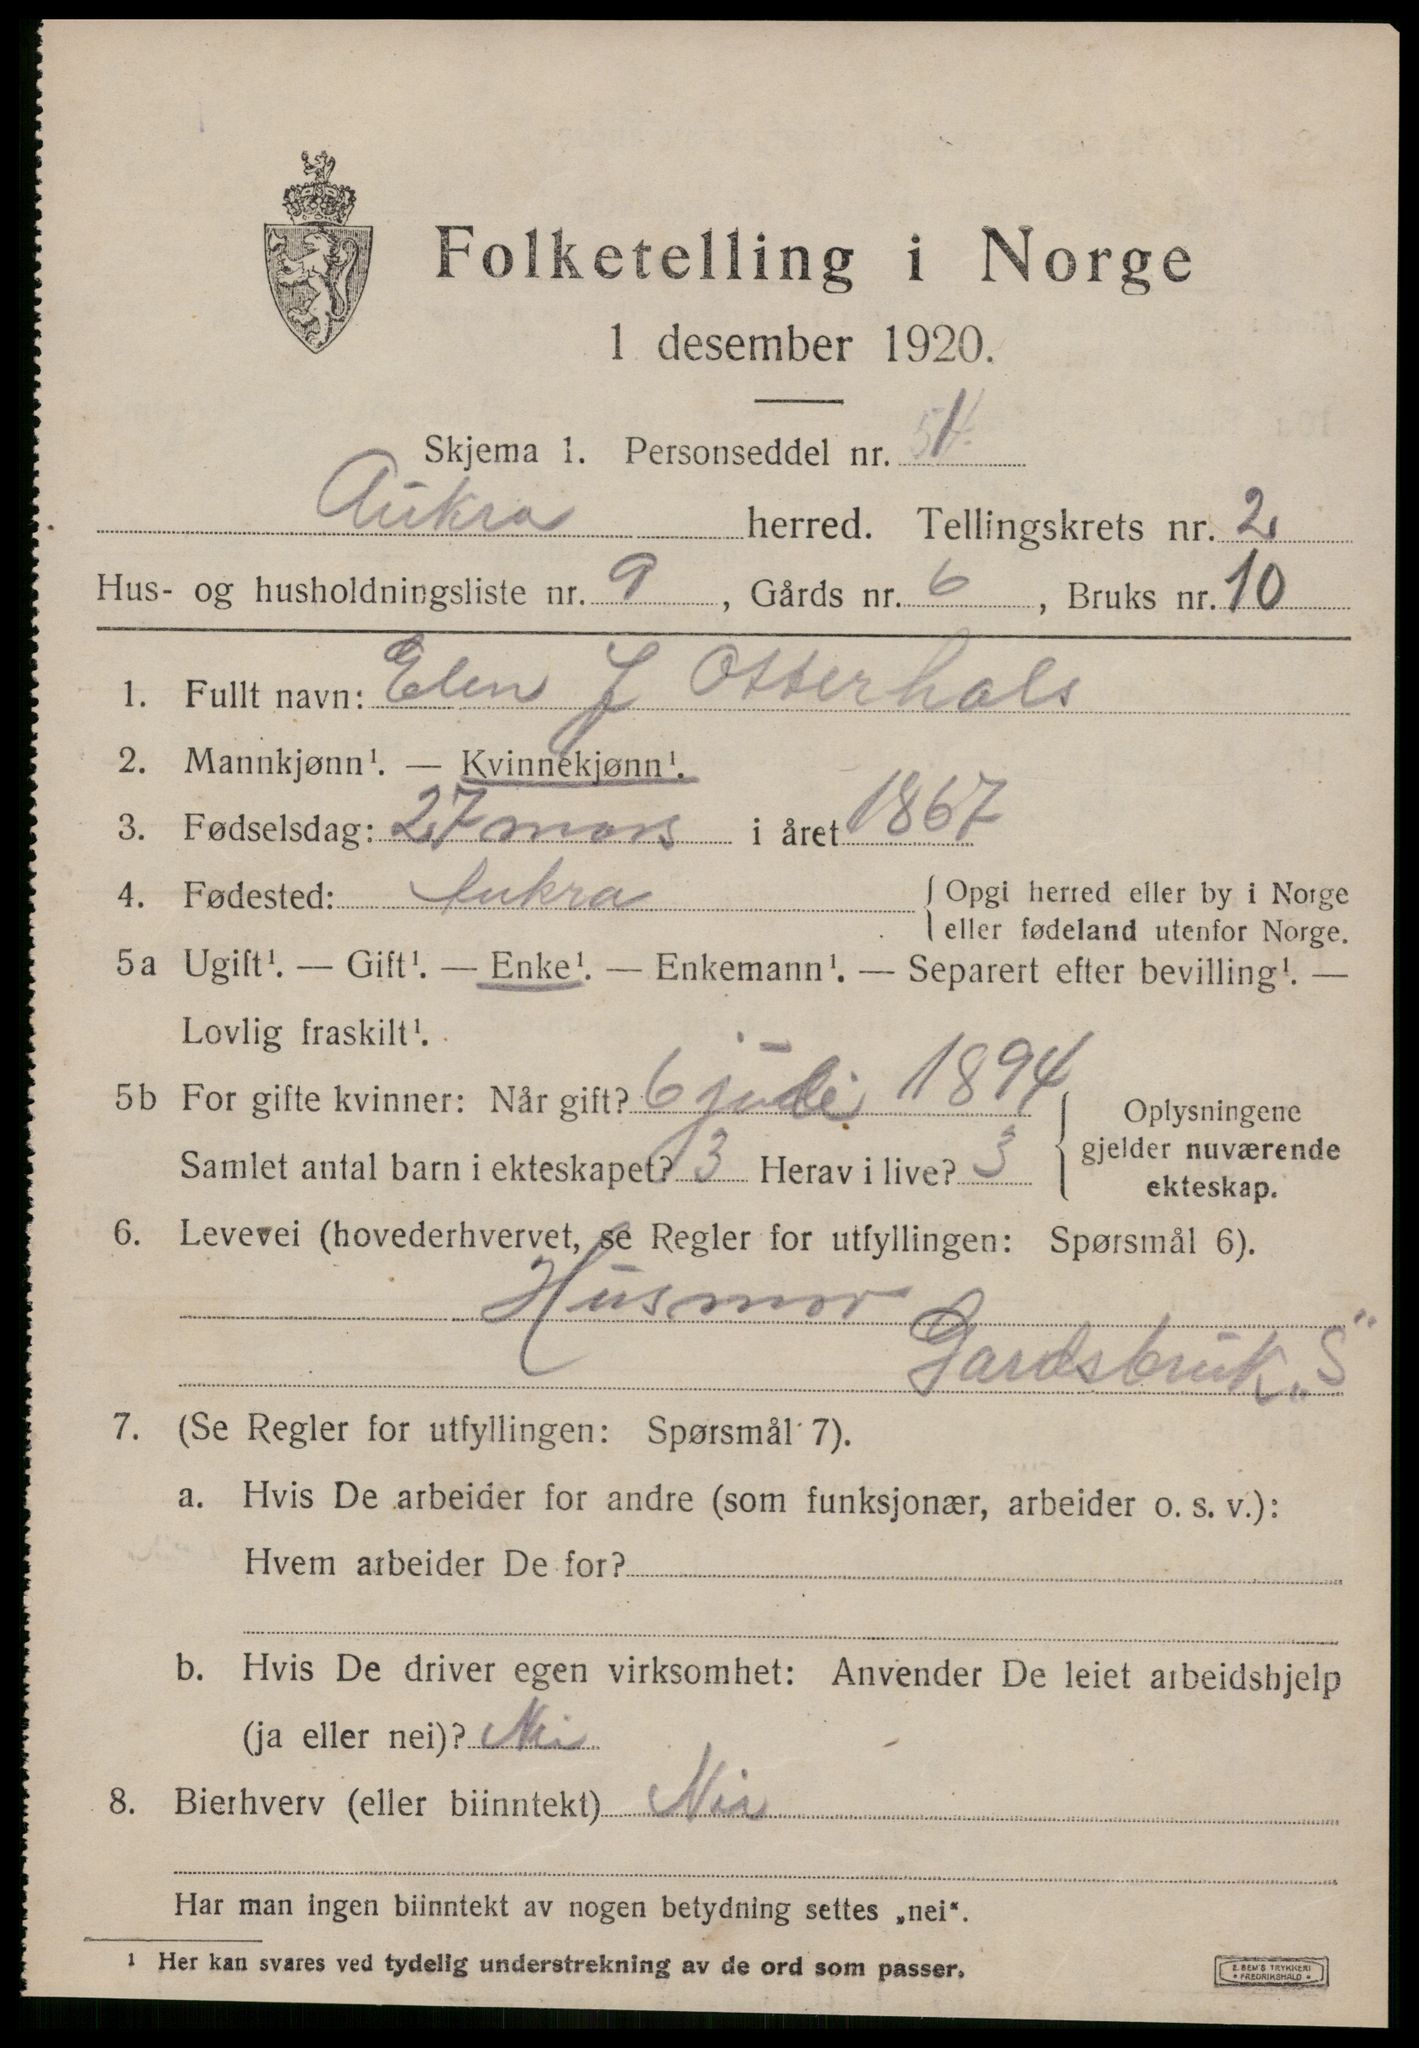 Folketelling i Norge
1 desember 1920.
Skjema 1. Personseddel nr.
Aukra herred. Tellingskrets nr. 2
Hus- og husholdningsliste nr. 9, Gårds nr. 6, Bruks nr. 10
1. Fullt navn: Elen J Otterhals
2. Mannkjønn¹. — Kvinnekjønn¹.
3. Fødselsdag: 27 mars i året 1867
4. Fødested: Aukra { Opgi herred eller by i Norge
eller fødeland utenfor Norge.
5a Ugift¹. — Gift¹. — Enke¹. — Enkemann¹. — Separert efter bevilling¹. —
Lovlig fraskilt¹.
5b For gifte kvinner: Når gift? 6 juli 1894
Samlet antal barn i ekteskapet? 3 Herav i live? 3
{ Oplysningene
gjelder nuværende
ekteskap.
6. Levevei (hovederhvervet, se Regler for utfyllingen: Spørsmål 6).
Husmor
Gardsbruk „S"
7. (Se Regler for utfyllingen: Spørsmål 7).
a. Hvis De arbeider for andre (som funksjonær, arbeider o. s. v.):
Hvem arbeider De for?
b. Hvis De driver egen virksomhet: Anvender De leiet arbeidshjelp
(ja eller nei)? Nei
8. Bierhverv (eller biinntekt) Nei
Har man ingen biinntekt av nogen betydning settes „nei".
¹ Her kan svares ved tydelig understrekning av de ord som passer.
E. SEM'S TRYKKERI
FREDRIKSHALD